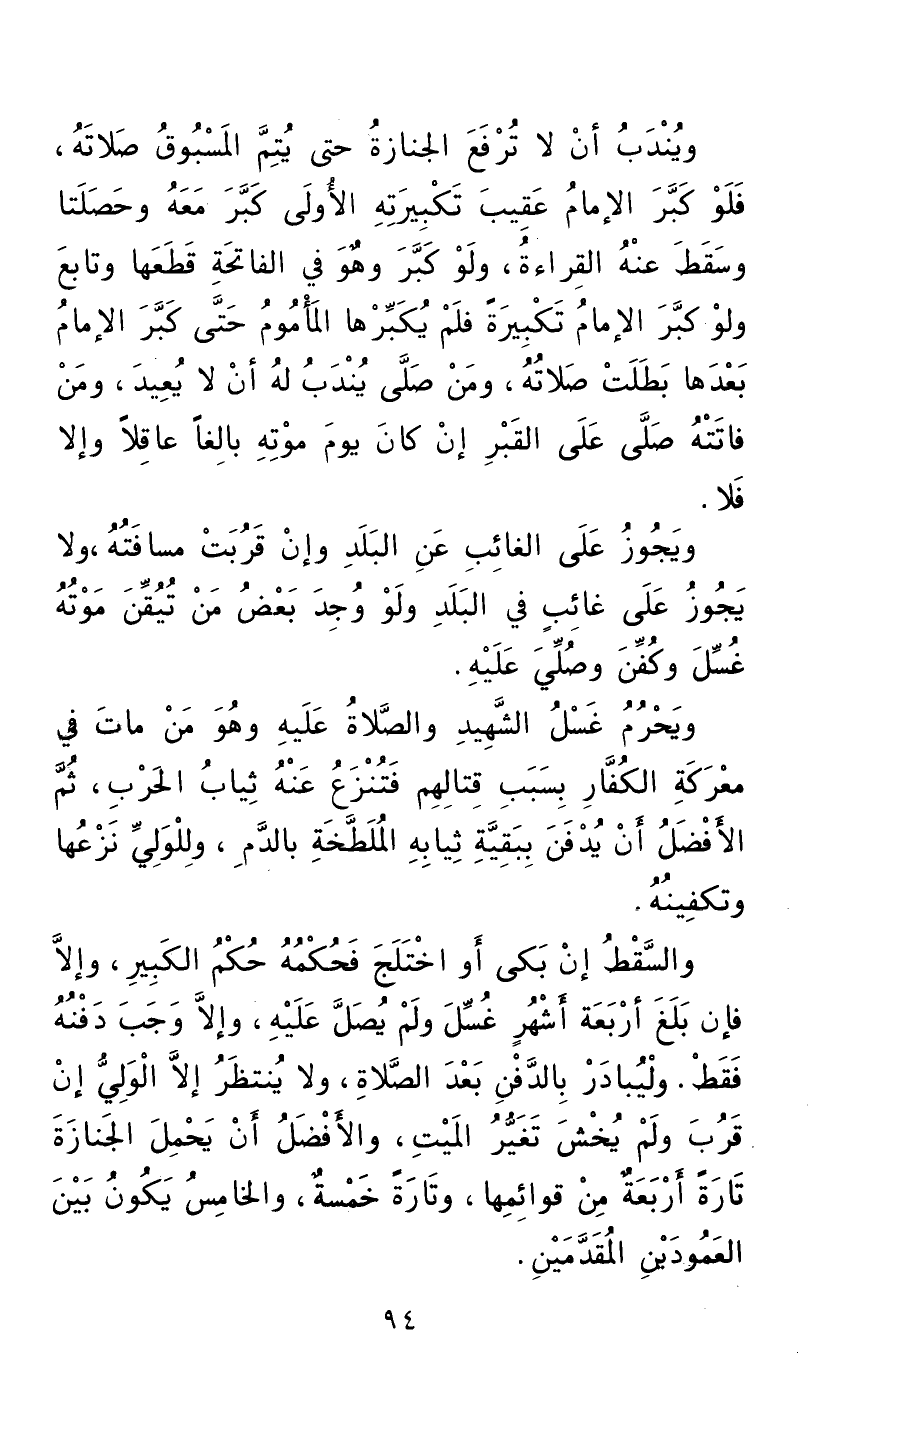 ويُنْدَبُ أنْ لا تُرْفَعَ الجنازةُ حتى يُتِمَّ المَسْبُوقُ صَلاتَهُ ،
فَلَوْ كَبَّرَ الإمامُ عَقِيبَ تَكْبِيرَتِهِ الأُولَى كَبَّرَ مَعَهُ وحَصَلَتا
وسَقَطَ عنْهُ القِراءةُ ، ولَوْ كَبَّرَ وهُوَ في الفاتحَةِ قَطَعَها وتابعَ
ولوْ كبَّرَ الإمامُ تَكْبِيرَةً فلَمْ يُكَبِّرْها المَأْمُومُ حَتَّى كَبَّرَ الإمامُ
بَعْدَها بَطَلَتْ صَلاتُهُ ، ومَنْ صَلَّى يُنْدَبُ لهُ أنْ لا يُعِيدَ ، ومَنْ
فاتَتْهُ صَلَّى عَلَى القَبْرِ إنْ كانَ يومَ موْتِهِ بالِغاً عاقِلاً وإلا
فَلا .
ويَجُوزُ عَلَى الغائِبِ عَنِ البَلَدِ وإنْ قَرُبَتْ مسافَتُهُ ،ولا
يَجُوزُ عَلَى غائِبٍ في البَلَدِ ولَوْ وُجِدَ بَعْضُ مَنْ تُيُقِّنَ مَوْتُهُ
غُسِّلَ وكُفِّنَ وصُلِّيَ عَلَيْهِ .
ويَحْرُمُ غَسْلُ الشَّهِيدِ والصَّلاةُ عَلَيهِ وهُوَ مَنْ ماتَ في
معْرَكَةِ الكُفَّارِ بِسَبَبِ قِتالِهِم فَتُنْزَعُ عَنْهُ ثِيابُ الحَرْبِ ، ثُمَّ
الأَفْضَلُ أنْ يُدْفَنَ بِبَقِيَّةِ ثِيابِهِ المُلَطَّخَةِ بالدَّمِ ، وللْوَلِيِّ نَزْعُها
وتكفِينُهُ .
والسَّقْطُ إنْ بَكى أَو اخْتَلَجَ فَحُكْمُهُ حُكْمُ الكَبِيرِ ، وإلاَّ
فإن بَلَغَ أرْبَعَة أَشْهُرٍ غُسِّلَ ولَمْ يُصَلَّ عَلَيْهِ ، وإلاَّ وَجَبَ دَفْنُهُ
فَقَطْ . ولْيُبادَرْ بِالدَّفْنِ بَعْدَ الصَّلاةِ ، ولا يُنتظَرُ إلاَّ الْوَلِيُّ إنْ
قَرُبَ ولَمْ يُخْشَ تَغَيُّرُ المَيْتِ ، والأَفْضَلُ أَنْ يَحْمِلَ الجَنازَةَ
تَارَةً أَرْبَعَةٌ مِنْ قوائمِها ، وتارَةً خَمْسةٌ ، والخامِسُ يَكُونُ بَيْنَ
العَمُودَيْنِ المُقَدَّمَيْنِ .
٩٤